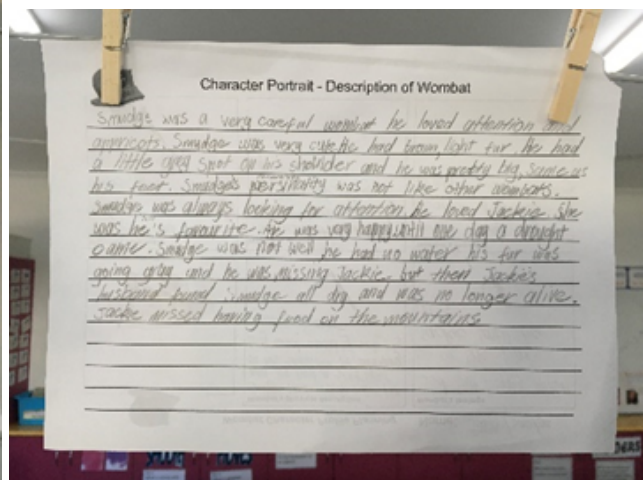 Character Portrait - Description of Wombat
Smudge was a very careful wombat he loved attention and
apprecots. Smudge was very cute. He had brown, light fur. He had
a little gray spot on his shoulder and he was pretty big, same as
his feet. Smudges was not like other wombats.
Smudge was always looking for attention he loved Jackie. She
was he's favourite. He was very happy until one day a drought
came. Smudge was not well he had no water his fur was
going gray and he was missing Jackie. but then Jackie's
husband found smudge all dry and was no longer alive.
Jackie missed having food on the mountains